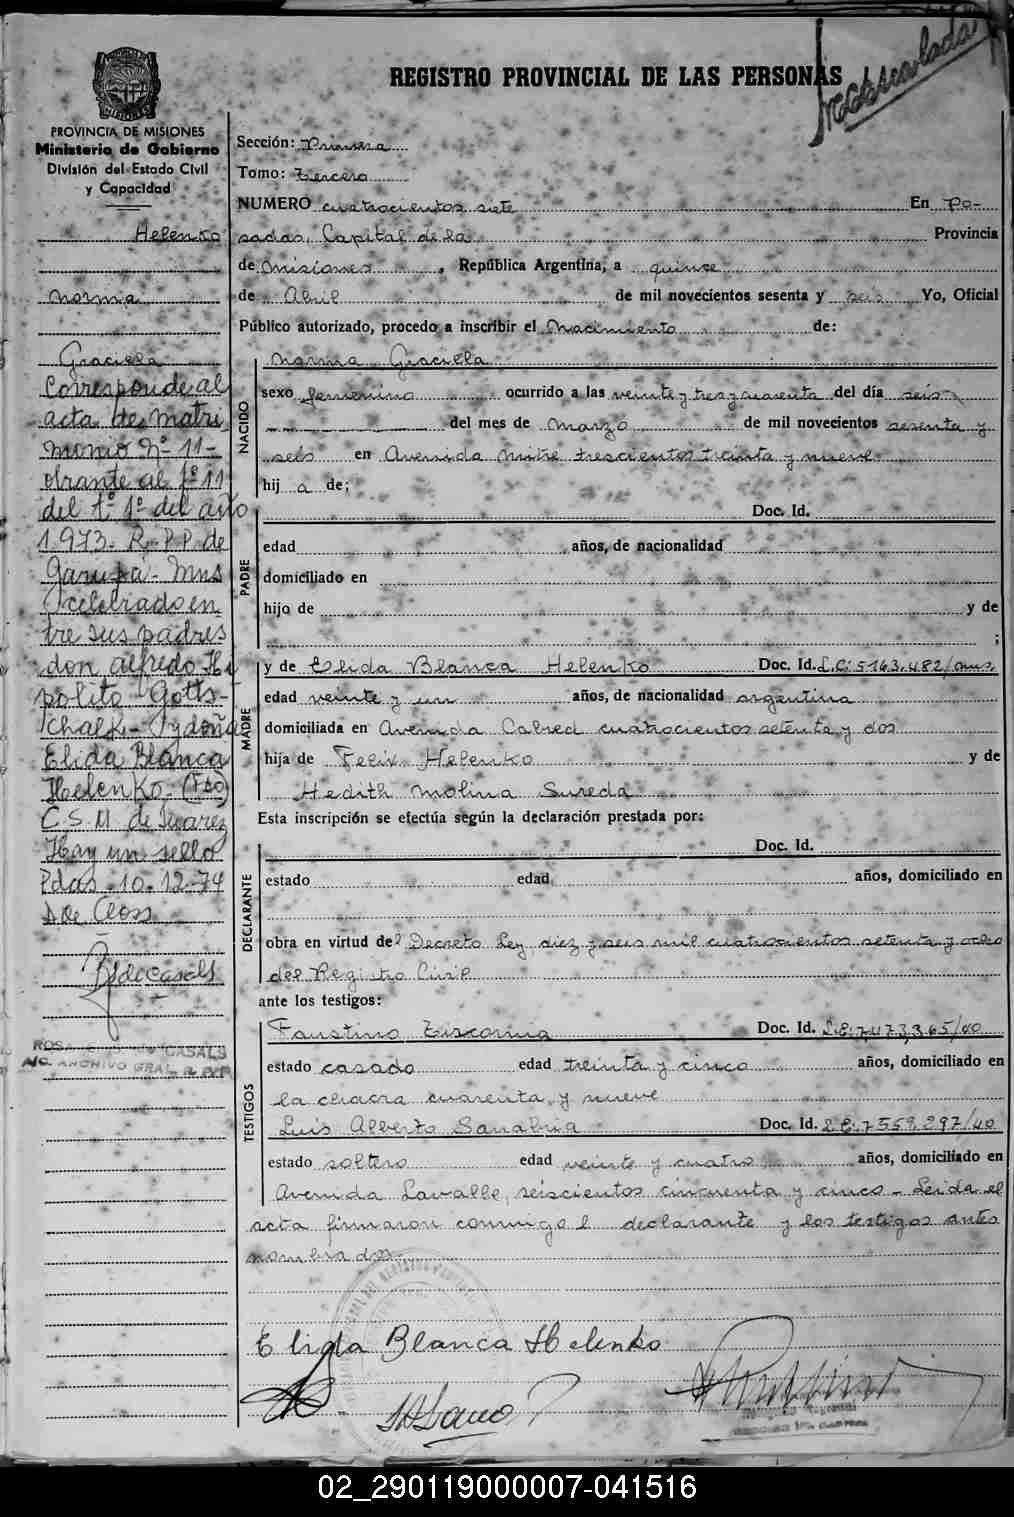 REGISTRO PROVINCIAL DE LAS PERSONAS
PROVINCIA DE MISIONES
Ministerio de Gobierno
División del Estado Civil
y Capacidad
Helenko
Norma
Graciela
Corresponde al
acta de matri
monio Nº 11-
obrante al fº 11
del tº 1º del año
1.973- R.P.P. de
Garupá- Mns
celebrado en
tre sus padres
don Alfredo Hi
polito Gotts-
chalk- y doña
Elida Blanca
Helenko- (Fdo)
C.S.M. de Suarez
Hay un sello
Pdas. 10-12-74
CASALS
A/C. ARCHIVO GRAL. R.P.P.
Sección: Primera
Tomo: Tercero
NUMERO cuatrocientos siete En Po-
sadas, Capital de la Provincia
de Misiones, República Argentina, a quince
de Abril de mil novecientos sesenta y seis Yo, Oficial
Público autorizado, procedo a inscribir el Nacimiento de:
NACIDO
Norma Graciela
sexo femenino ocurrido a las veinte y tres y cuarenta del día seis
del mes de marzo de mil novecientos sesenta y
seis en Avenida Mitre trescientos treinta y nueve
hij a de:
PADRE
Doc. Id.
edad años, de nacionalidad
domiciliado en
hijo de y de
;
MADRE
y de Elida Blanca Helenko Doc. Id. L.C: 5163.482/mns.
edad veinte y un años, de nacionalidad argentina
domiciliada en Avenida Cabred cuatrocientos setenta y dos
hija de Felix Helenko y de
Hedith Molina Sureda
Esta inscripción se efectúa según la declaración prestada por:
DECLARANTE
Doc. Id.
estado edad años, domiciliado en
obra en virtud del Decreto Ley diez y seis mil cuatrocientos setenta y ocho
del Registro Civil
ante los testigos:
TESTIGOS
Faustino Doc. Id. L.E: 7,473,365/40
estado casado edad treinta y cinco años, domiciliado en
la chacra cuarenta y nueve
Luis Alberto Sanabria Doc. Id. L.E: 7559.297/40
estado soltero edad veinte y cuatro años, domiciliado en
Avenida Lavalle seiscientos cincuenta y cinco- Leida el
acta firmaron conmigo l declarante y los testigos antes
nombrados-
Elida Blanca Helenko
02_290119000007-041516